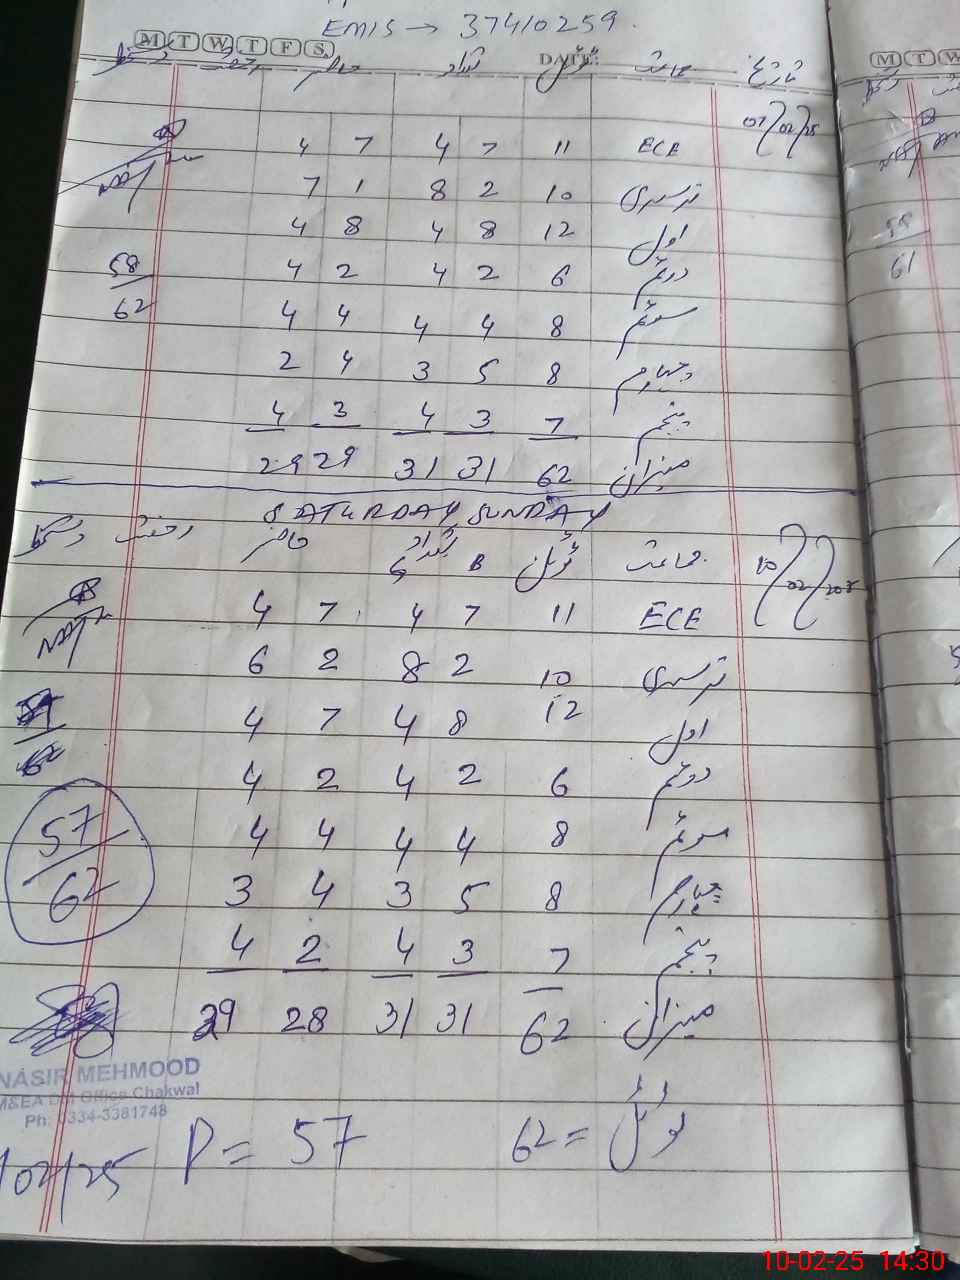 EMIS → 37410259
M T W T F S DATE:
تاریخ جماعت ٹوٹل تعداد حاضر رخصت دستخط
07/02/25 ECE 11 7 4 7 4
نرسری 10 2 8 1 7
اول 12 8 4 8 4
دوئم 6 2 4 2 4
58
سوئم 8 4 4 4 4
62
چہارم 8 5 3 4 2
پنجم 7 3 4 3 4
میزان 62 31 31 29 29
SATURDAY SUNDAY
جماعت ٹوٹل تعداد حاضر رخصت دستخط
B G
10/02/ ECE 11 7 4 7 4
نرسری 10 2 8 2 6
اول 12 8 4 7 4
دوئم 6 2 4 2 4
سوئم 8 4 4 4 4
57
چہارم 8 5 3 4 3
62
پنجم 7 3 4 2 4
میزان 62 31 31 28 29
NASIR MEHMOOD
M&EA Office Chakwal
Ph: 0334-3381748
ٹوٹل = 62
P = 57
/02/25
M T W
58
61
10-02-25 14:30